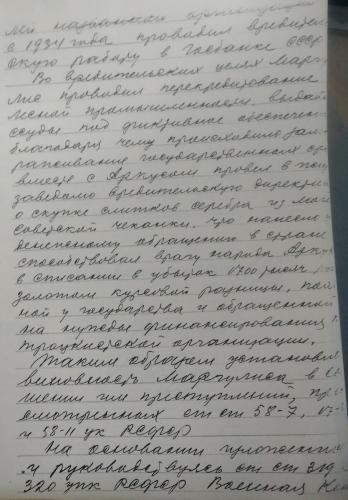 лей названной организации
с 1934 года проводил вредитель
скую работу в Госбанке СССР
Во вредительских целях Маргу
лис проводил перекредитование
лесной промышленности, выдавал
ссуды под фиктивное обеспечен
благодаря чему происходило зам
раживание государственных ср
вместе с Аркусом провел в жизн
заведомо вредительскую директив
о скупке слитков серебра из мон
советской чеканки, что нанесло у
денежному обращению в стране
способствовал врагу народа Арку
в списании в убыток 1700 тысяч
золотом курсовой разницы,
ной у государства и обращенной
на нужды финансирования
троцкистской организации.
Таким образом установлен
виновность Маргулиса в со
шении им преступлений, пре
смотренных ст ст 58-7,
и 58-11 ук РСФСР
На основании изложенно
и руководствуясь ст ст 319
320 упк РСФСР Военная Кол